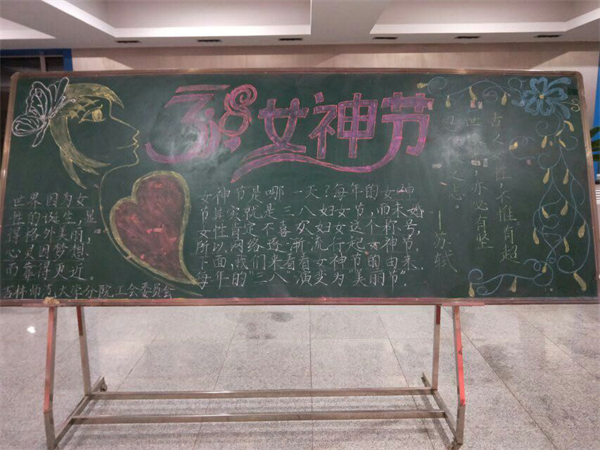 3.8女神节
世界因为女
性的诞生,显
得格外美丽,
心灵因梦想
而靠得更近。
林师范大学分院工会委员会
女神节是哪一天?每年的女神
节其实就是三八妇女节,而未婚
女性肯定不喜欢妇女这个称号,
所以网络逐渐流行女神节。
下面,我们来看看女神节的由来。
每年的"三八"演变为"美丽节"。
不惟有超
世 亦必有坚
之志。
——苏轼